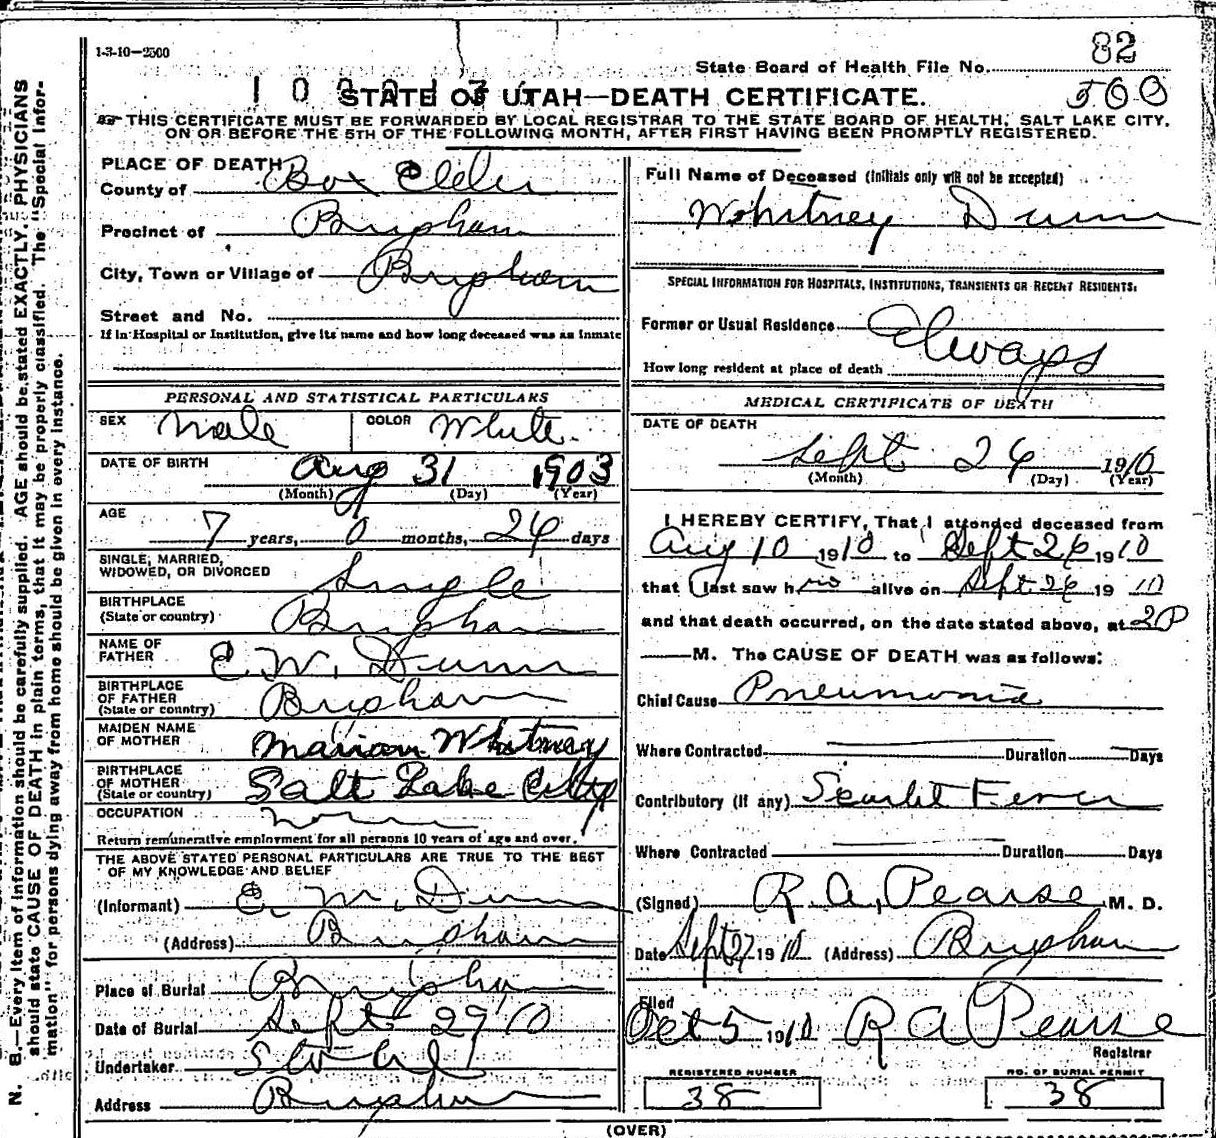 1-3-10—2500
82
State Board of Health File No.
500
STATE OF UTAH—DEATH CERTIFICATE.
THIS CERTIFICATE MUST BE FORWARDED BY LOCAL REGISTRAR TO THE STATE BOARD OF HEALTH, SALT LAKE CITY,
ON OR BEFORE THE 5TH OF THE FOLLOWING MONTH, AFTER FIRST HAVING BEEN PROMPTLY REGISTERED.
PLACE OF DEATH
County of Box Elder
Precinct of Brigham
City, Town or Village of Brigham
Street and No.
If in Hospital or Institution, give its name and how long deceased was an inmate
PERSONAL AND STATISTICAL PARTICULARS
SEX Male COLOR White
DATE OF BIRTH Aug 31 1903
(Month) (Day) (Year)
AGE
7 years, 0 months, 26 days
SINGLE, MARRIED,
WIDOWED, OR DIVORCED Single
BIRTHPLACE
(State or country) Brigham
NAME OF
FATHER E. W. Dunn
BIRTHPLACE
OF FATHER
(State or country) Brigham
MAIDEN NAME
OF MOTHER Marian Whitney
BIRTHPLACE
OF MOTHER
(State or country) Salt Lake City
OCCUPATION
Return remunerative employment for all persons 10 years of age and over.
THE ABOVE STATED PERSONAL PARTICULARS ARE TRUE TO THE BEST
OF MY KNOWLEDGE AND BELIEF
(Informant) E. W. Dunn
(Address) Brigham
Place of Burial Brigham
Date of Burial Sept 29 10
Undertaker
Address Brigham
Full Name of Deceased (Initials only will not be accepted)
Whitney Dunn
SPECIAL INFORMATION FOR HOSPITALS, INSTITUTIONS, TRANSIENTS OR RECENT RESIDENTS:
Former or Usual Residence
Always
How long resident at place of death
MEDICAL CERTIFICATE OF DEATH
DATE OF DEATH
Sept 26 1910
(Month) (Day) (Year)
I HEREBY CERTIFY, That I attended deceased from
Aug 10 1910 to Sept 26 1910
that I last saw him alive on Sept 26 1910
and that death occurred, on the date stated above, at 2 P
M. The CAUSE OF DEATH was as follows:
Chief Cause Pneumonia
Where Contracted Duration Days
Contributory (if any) Scarlet Fever
Where Contracted Duration Days
(Signed) R. A. Pearse M. D.
Date Sept 27 1910 (Address) Brigham
Filed
Oct 5 1910 R A Pearse
Registrar
REGISTERED NUMBER NO. OF BURIAL PERMIT
38 38
(OVER)
N. B.—Every item of information should be carefully supplied. AGE should be stated EXACTLY. PHYSICIANS
should state CAUSE OF DEATH in plain terms, that it may be properly classified. The "Special Infor-
mation" for persons dying away from home should be given in every instance.